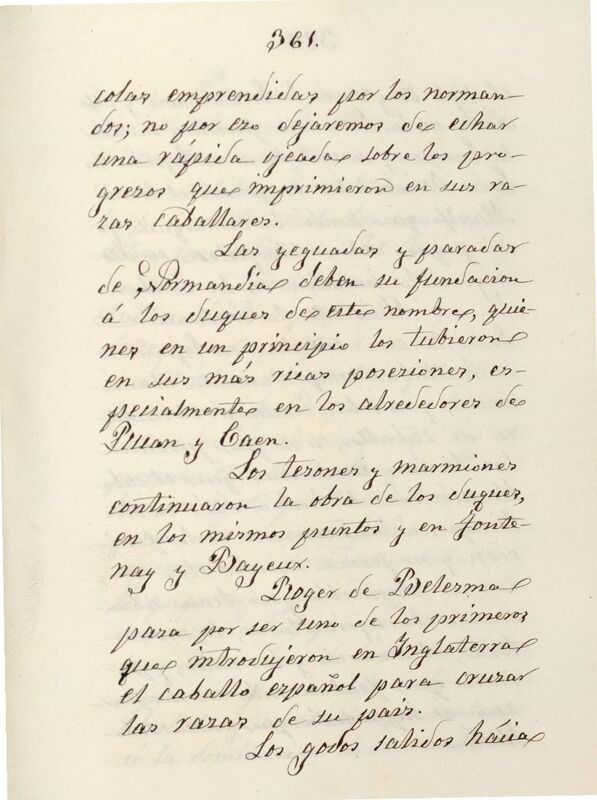 361.
colas emprendidas por los norman-
dos; no por ezo dejaremos de echar
una rápida ojeada sobre los pro-
grezos que imprimieron en sus ra-
zas caballares.
Las yeguadas y paradas
de Normandia deben su fundacion
á los duques de este nombre, quie-
nes en un principio los tubieron
en sus más ricas posesiones, es-
pecialmente en los alrededores de
Ruan y Caen.
Los tesones y marmiones
continuaron la obra de los duques,
en los mismos puntos y en Fonte-
nay y Bayeux.
Roger de Belesma
pasa por ser uno de los primeros
que introdujeron en Inglaterra
el caballo español para cruzar
las razas de su pais.
Los godos salidos hácia